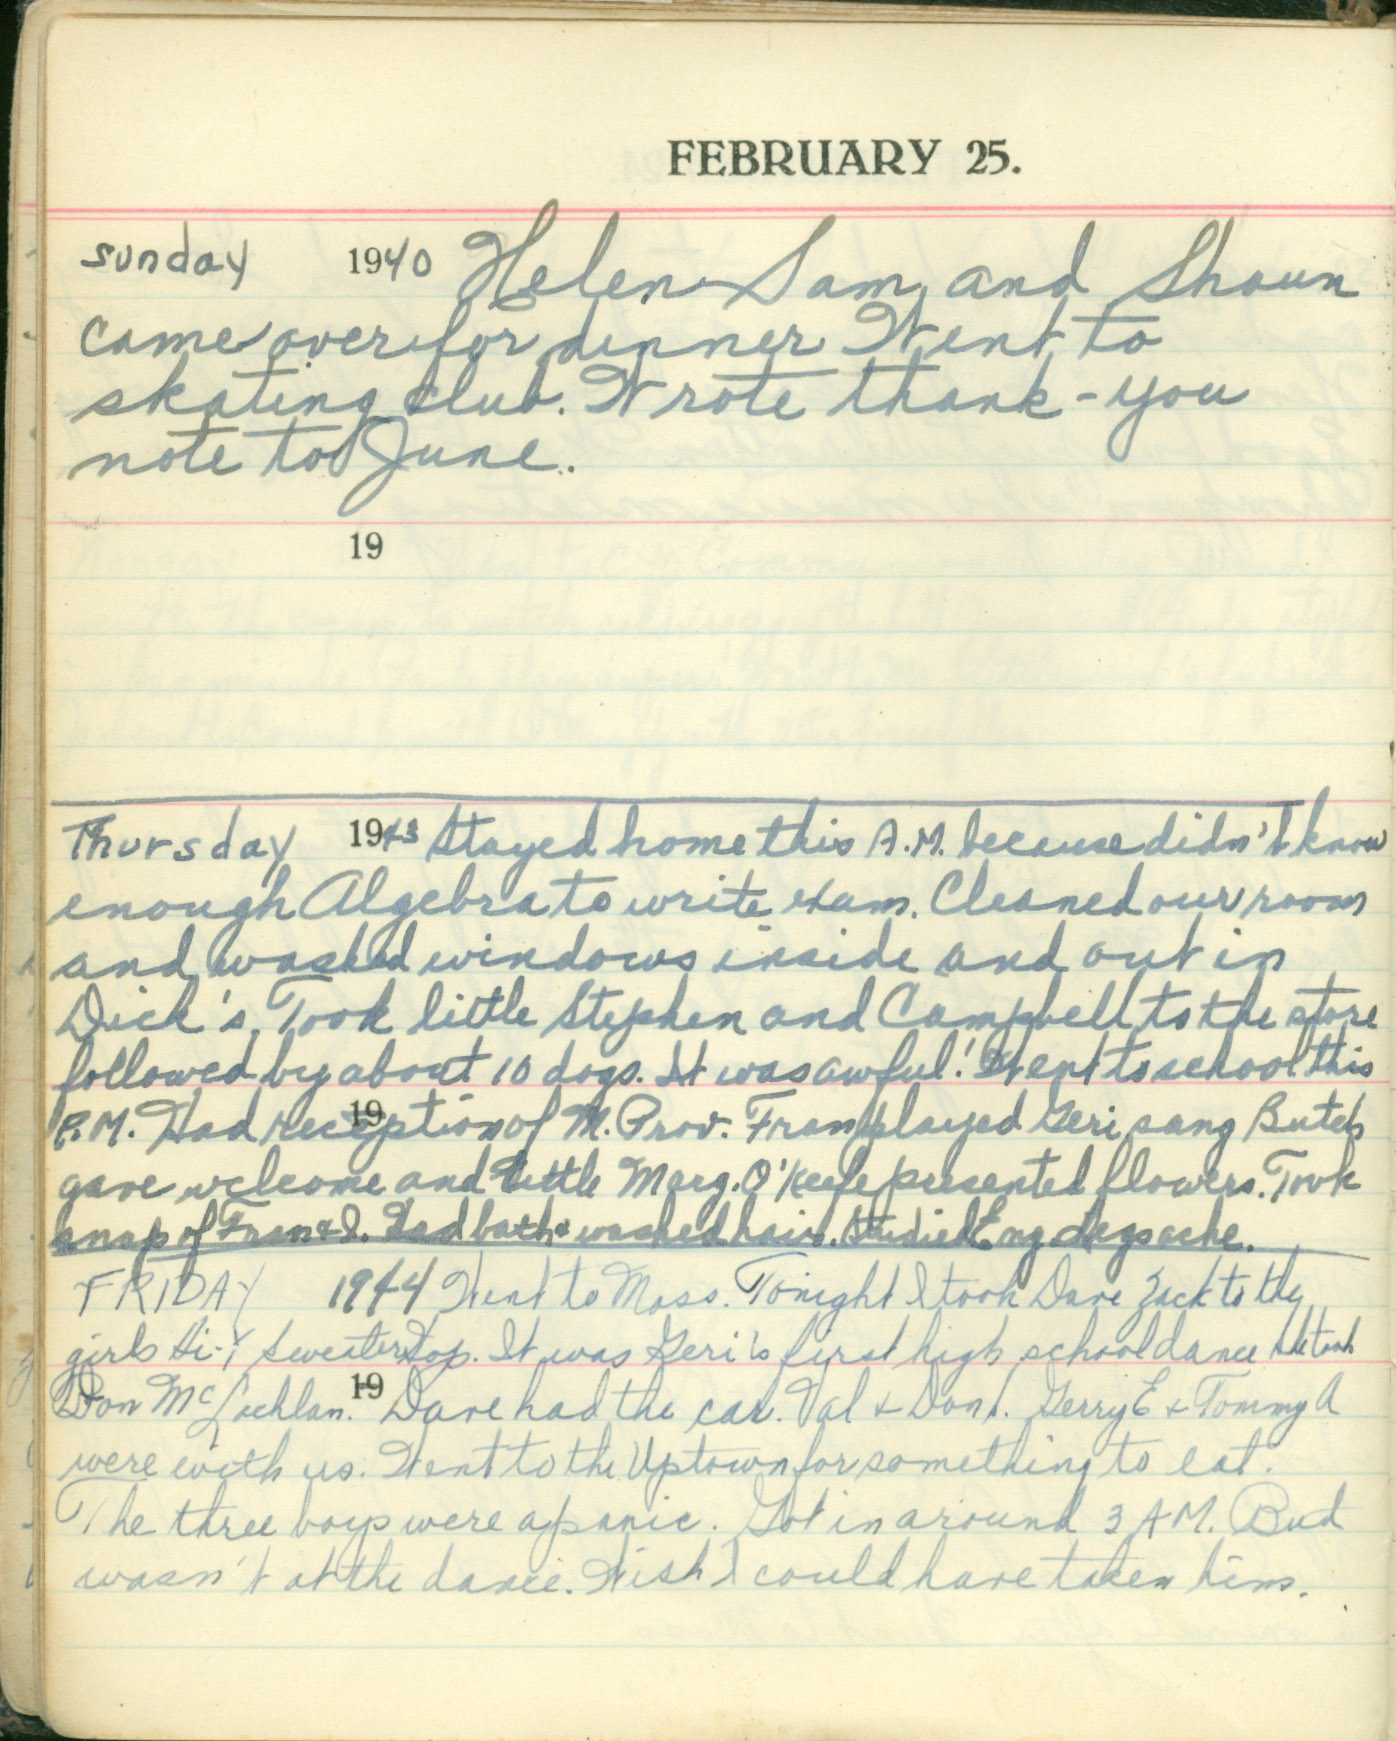 FEBRUARY 25.
Sunday 1940 Helen Sam and Shaun
came over for dinner Went to
skating club. Wrote thank-you
note to June.
19
Thursday 1943 Stayed home this A.M. because didn't know
enough Algebra to write exam. Cleaned our room
and washed windows inside and out in
Dick's. Took little Stephen and Campbell to the store
followed by about 10 dogs. It was awful! Went to school this
19
P.M. Had reception of M. Prov. Fran played Geri sang Butch
gave welcome and little Marg. O'Keefe presented flowers. Took
snap of Fran & I. Had bath & washed hair. Studied Eng Legs ache.
FRIDAY 1944 Went to Mass. Tonight I took Dave Zack to the
girls Hi-Y Sweater Hop. It was Geri's first high school dance she took
19
Don McLachlan. Dave had the car. Val & Don . Gerry E & Tommy A
were with us. Went to the Uptown for something to eat.
The three boys were a panic. Got in around 3 A.M. Bud
wasn't at the dance. Wish I could have taken him.